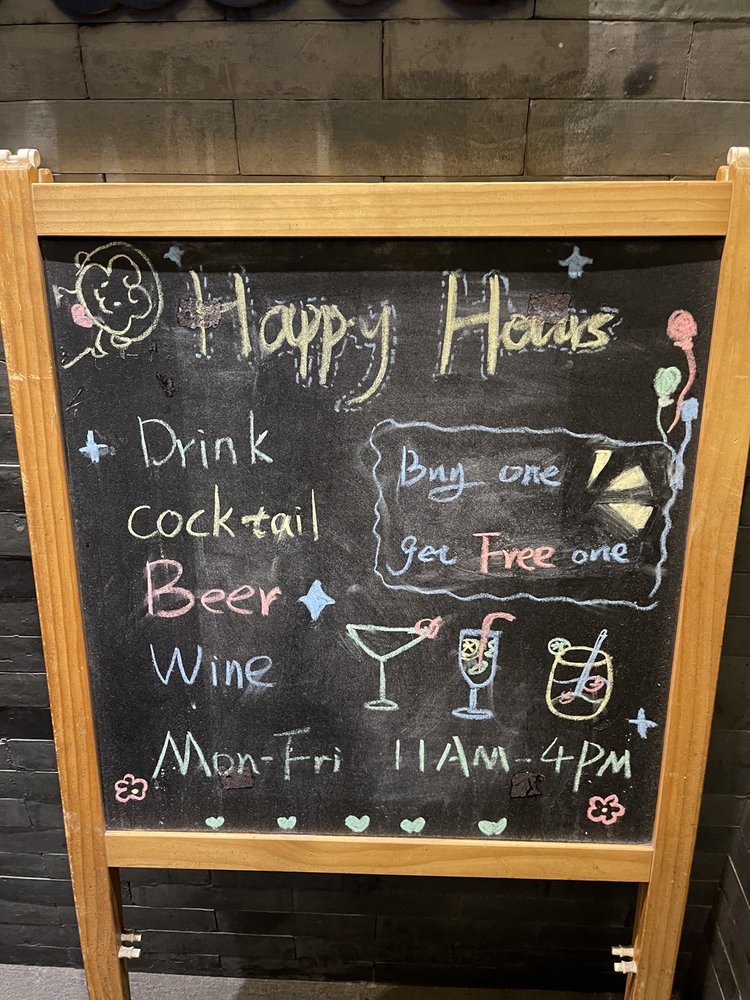 Happy Hours
Drink
cocktail
Beer
Wine
Buy one
get Free one
Mon-Fri 11AM-4PM